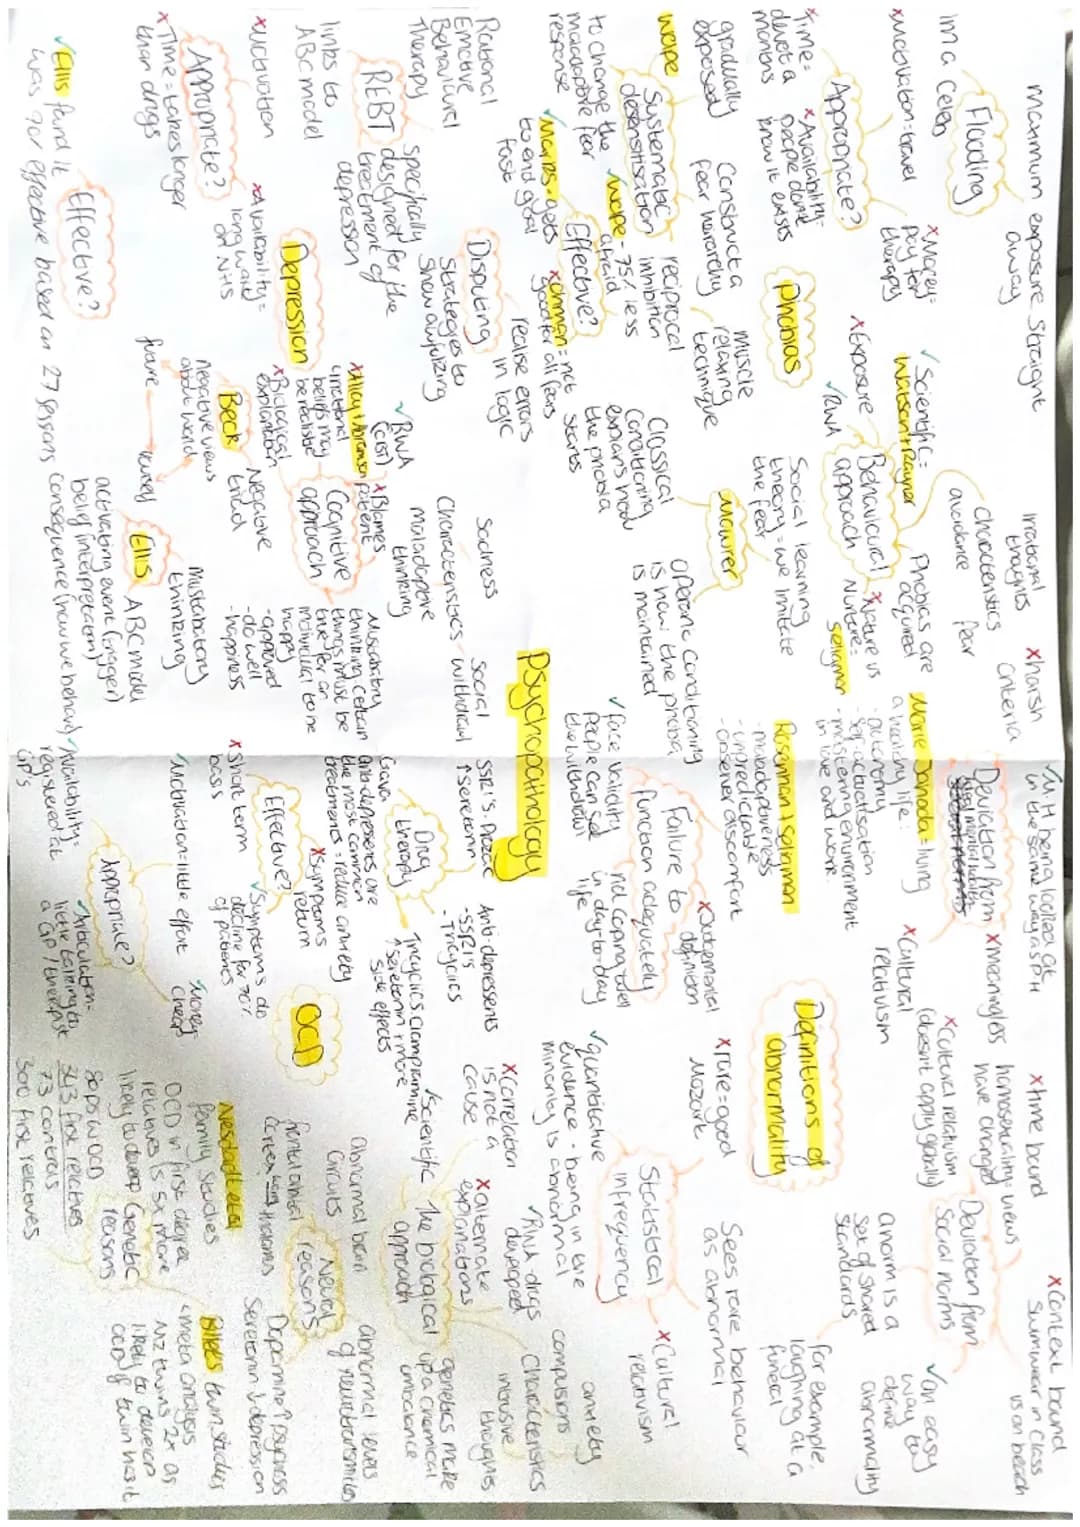 Psychopathology
Phobias
maximum exposure straight
away
Flooding
im a celeb
Appropriate?
x Motivation = travel
x Money =
pay for
therapy
x Time =
devot a
months
x Availability -
people dont
know it exists
Systematic
desensitisation
wolpe
gradually
exposed
Construct a
fear heirarchy
muscle
relaxing
technique
reciprocal
inhibition
to change the
maladaptive fear
response
Effective?
✓ wolpe - 75% less
afraid
✓ Marks - gets
to end goal
fast
x ohman = not
good for all fears
Behavioural
approach
✓ Scientific =
Watson + Rayner
x Exposure
✓ RWA
Phobias are
acquired
x Nature vs
Nurture =
seligman
characteristics
irrational
thoughts
avoidance
fear
Mowrer
Social learning
theory = we imitate
the fear
Classical
conditioning
explains how
the phobia
starts
operant conditioning
is how the phobia
is maintained
Depression
Rational
Emotive
Behavioural
Therapy
REBT
links to
ABC model
specifically
designed for the
treatment of
depression
Disputing
realise errors
in logic
strategies to
show awfulizing
Appropriate?
x Motivation
x Availability =
long wait
on NHS
x Time = takes longer
than drugs
Effective?
✓ Ellis found it
was 90% effective based on 27 sessions
Cognitive
approach
✓ RWA
(CBT)
x Blames
patient
x Alloy + Abramson
irrational
beliefs may
be realistic
x Biological
explanation
Beck
Negative
triad
Negative views
about world
future
yourself
Ellis
ABC model
activating event (trigger)
belief (interpretation)
consequence (how we behave)
Mustabatory
thinking
Musturbatory
thinking certain
things must be
true for an
individual to be
happy
- approved
- do well
- happiness
Characteristics
Sadness
maladaptive
thinking
social
withdrawal
Definitions of
abnormality
Deviation from
ideal mental health
x harsh
criteria
✓ M.H being looked at
in the same way as P.H
x meaningless
x Cultural
relativism
Marie Jahoda = living
a healthy life:
- autonomy
- self-actualisation
- mastering environment
in love and work
Failure to
function adequately
Rosenhan + seligman
- maladaptiveness
- unpredictable
- observer discomfort
✓ face validity
people can see
the withdrawl
not coping well
in day to day
life
x Judgemental
definition
Deviation from
Social norms
x time bound
homosexuality = views
have changed
x Context bound
swimwear in class
vs on beach
x Cultural relativism
(doesn't apply generally)
✓ an easy
way to
define
abnormality
a norm is a
set of shared
standards
for example.
laughing at a
funeral
Statistical
infrequency
x rare = good
Mozart
Sees rare behaviour
as abnormal
✓ quantitative
evidence - being in the
minority is abnormal
x Cultural
relativism
OCD
Drug
therapy
SSRI's. Prozac
↑ serotonin
Anti-depressents
- SSRI's
- Tricyclics
Tricyclics Clomipramine
↑ seretonin + more
side effects
Gava
anti-depressents are
the most common
treatments = reduce anxiety
Effective?
x Short term
basis
x Symptoms
return
✓ Symptoms do
decline for 70%
of patients
Appropriate?
✓ Motivation = little effort
✓ Money
cheap
✓ Availability =
registered at
GP's
✓ Articulation =
little talking to
a GP / therapist
The biological
approach
✓ Scientific
x Correlation
is not a
cause
x alternate
explanations
✓ RWA drugs
developed
genetics make
up a chemical
imbalance
Characteristics
intrusive
thoughts
compulsions
anxiety
Neural
reasons
abnormal brain
circuits
frontal orbital
cortex
thalamus
abnormal levels
of neurotransmitters
Dopamine ↑ psychosis
Seretonin ↓ depression
Genetic
reasons
Nesdadt et al
family studies
OCD in first degree
relatives is 5x more
likely to develop
80ps w OCD
343 first relatives
73 controls
300 first relatives
Billets twin studies
meta analysis
MZ twins 2x as
likely to develop
OCD if twin has it